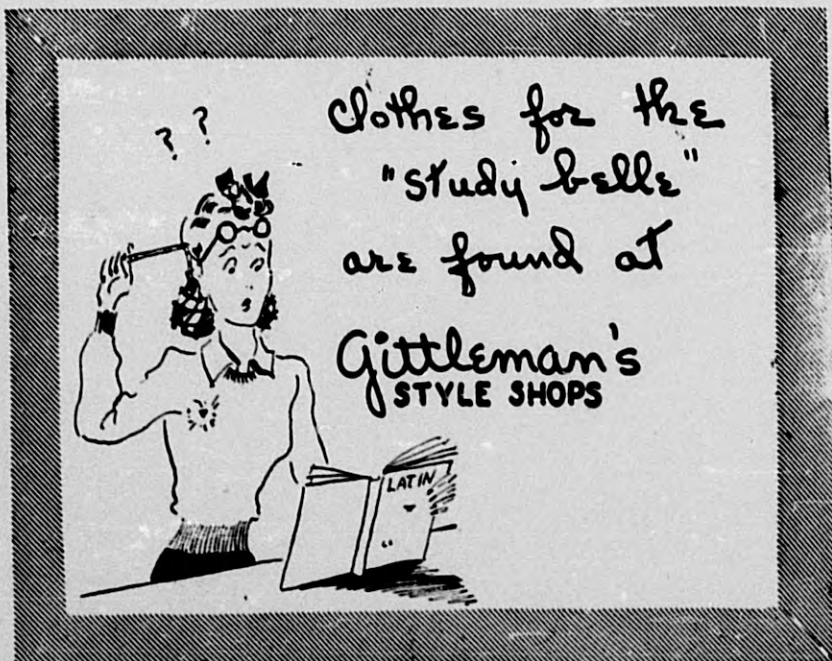 ? ?
Clothes for the
"study belle"
are found at
Gittleman's
STYLE SHOPS
LATIN